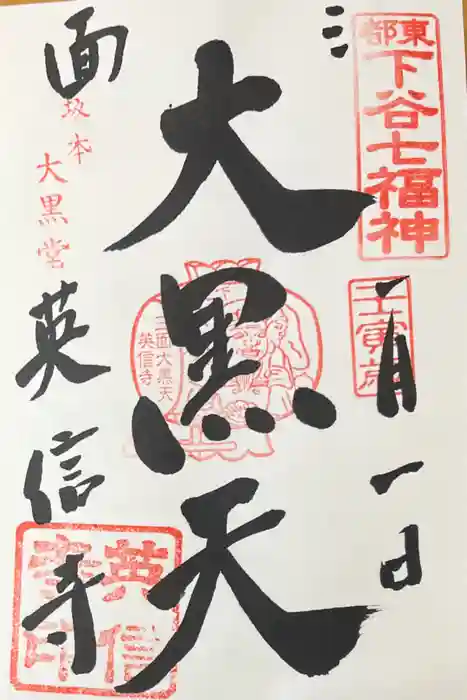 東都
下谷七福神
壬寅歳
一月一日
三
面
大黒天
三面大黒天
英信寺
坂本
大黒堂
英信寺
英信
寺印